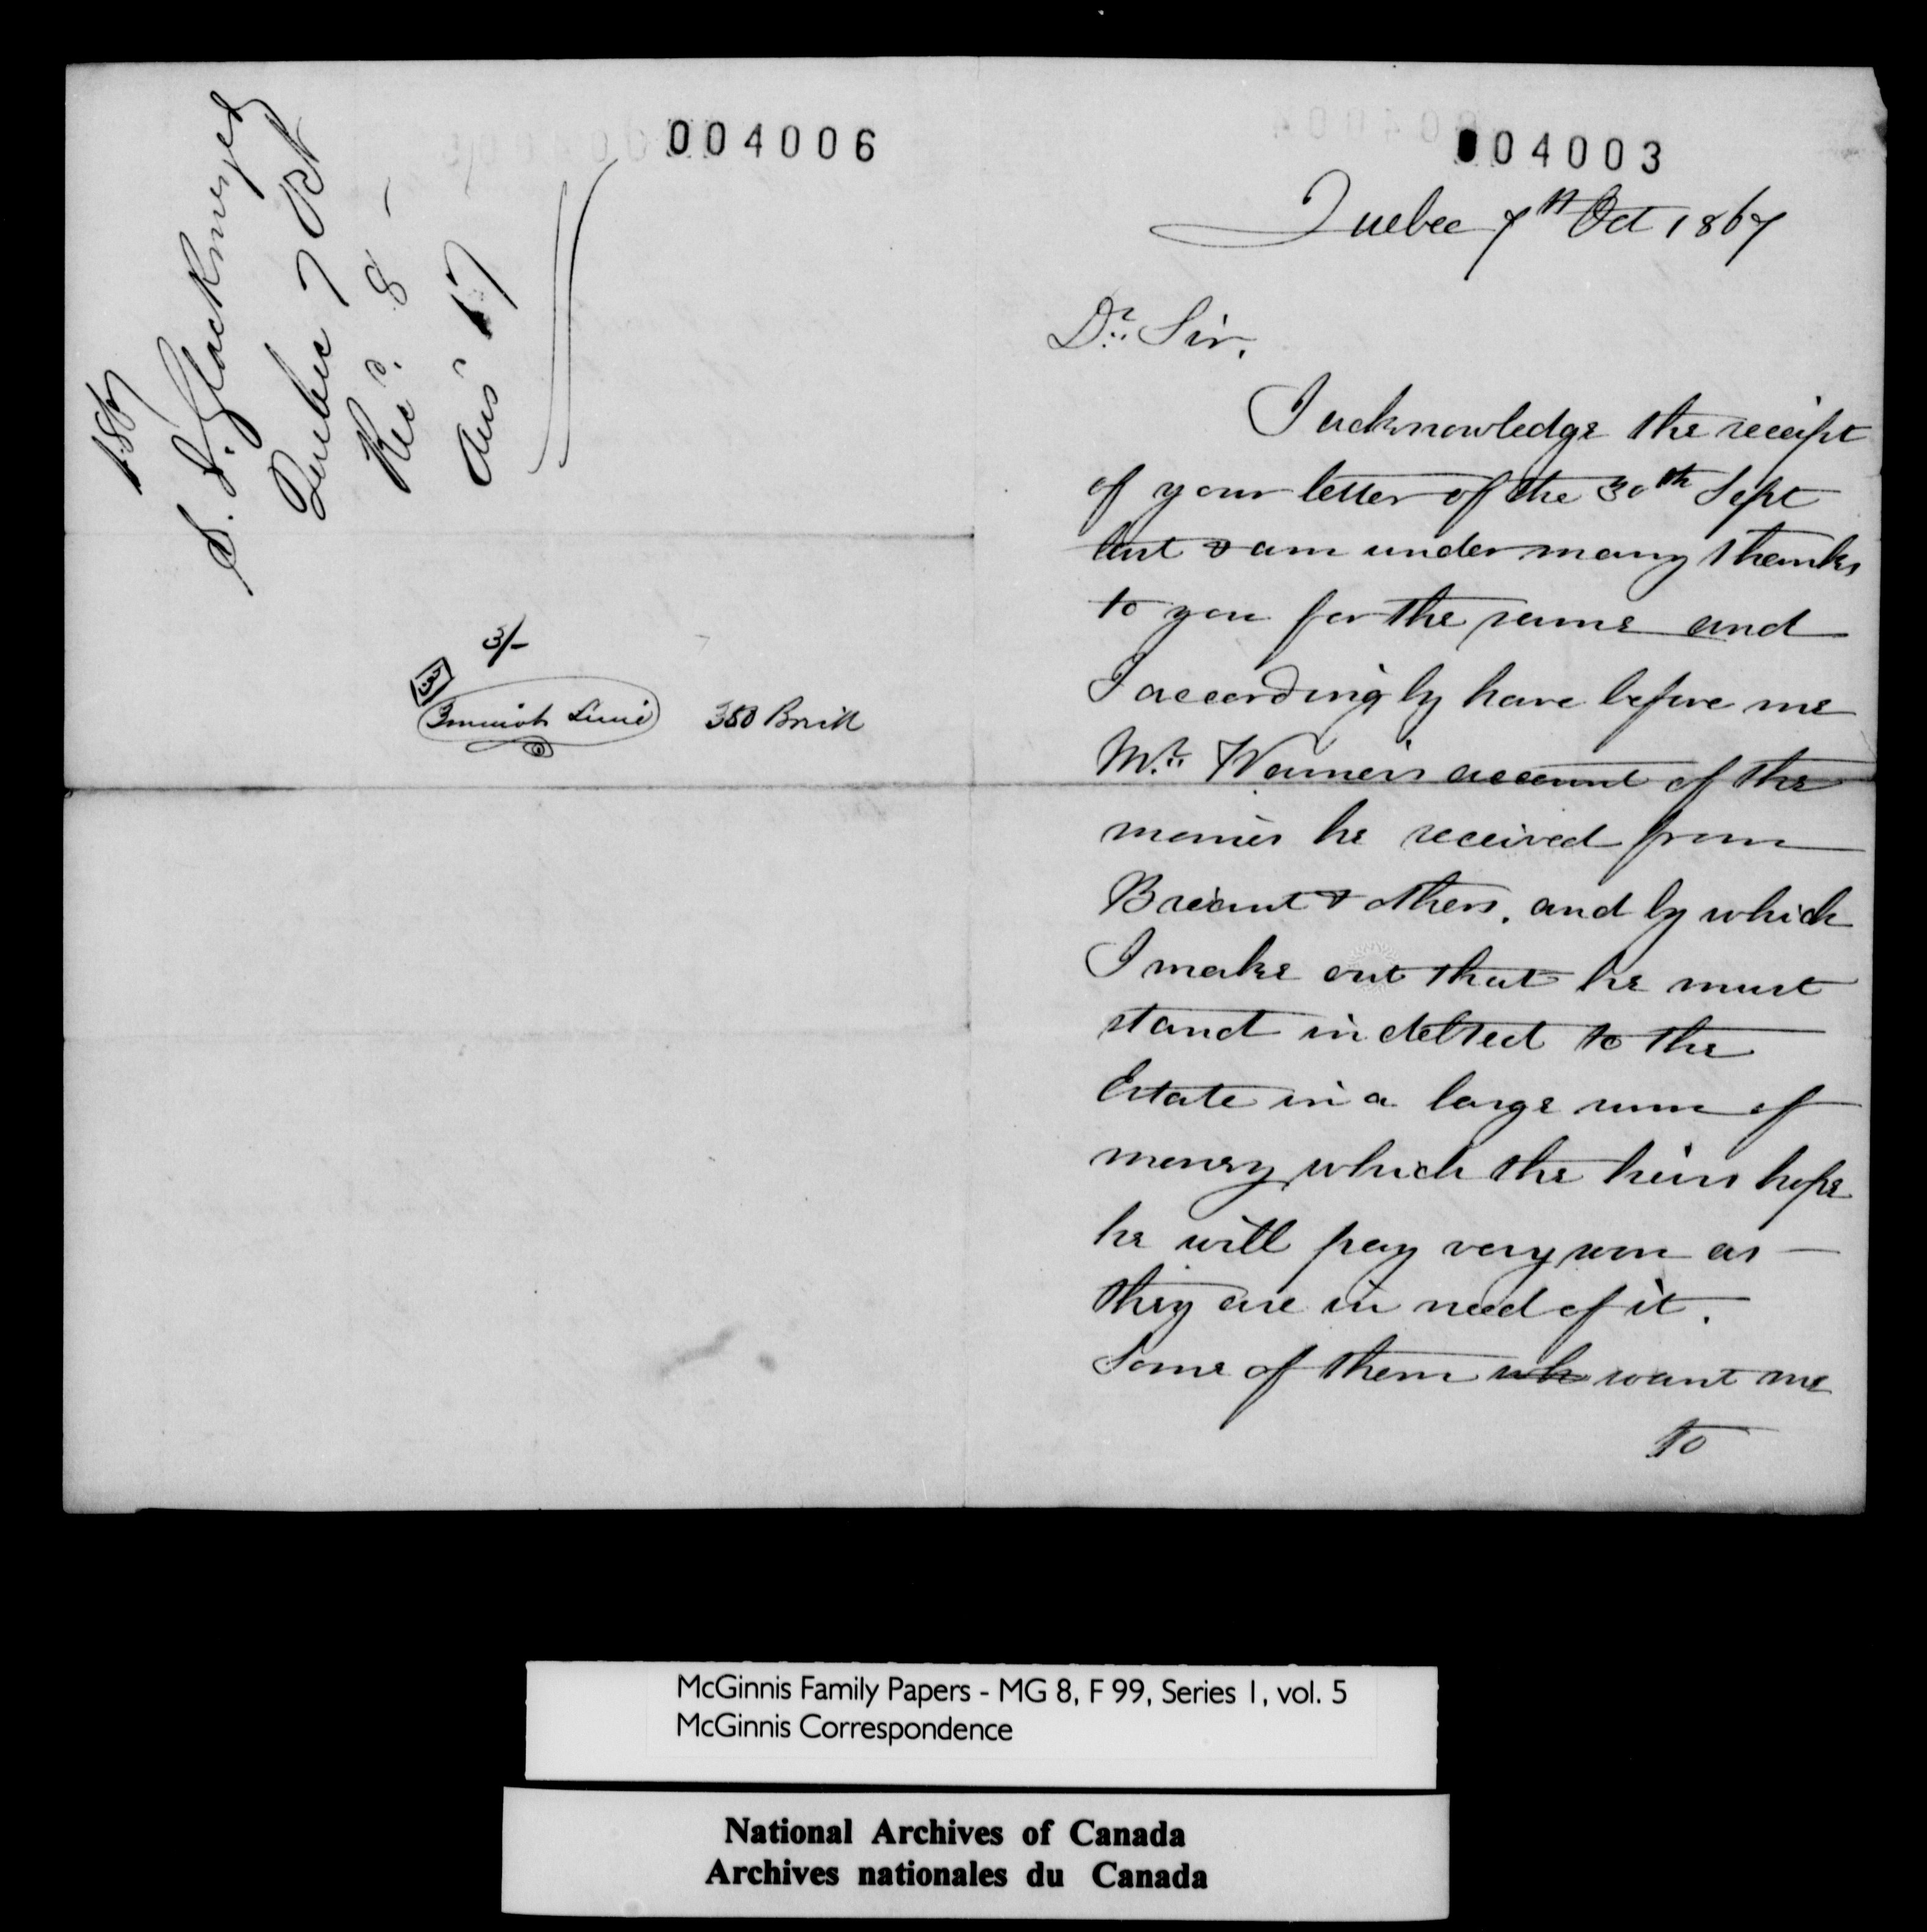 004006
1867
S. I. Glackmeyer
Quebec 7 Oct
Recd. 8 -
Ans 17
3/-
350 Brick
004003
Quebec 7th Oct 1867
Dr. Sir.
I acknowledge the receipt
of your letter of the 30th Sept
last & am under many thanks
to you for the same and
I accordingly have before me
Mr. account of the
monies he received from
Breiant & others. and by which
I make out that he must
stand indebted to the
Estate in a large sum of
money, which the heirs hope
he will pay very soon as
they are in need of it.
Some of them wh want me
to
McGinnis Family Papers - MG 8, F 99, Series 1, vol. 5
McGinnis Correspondence
National Archives of Canada
Archives nationales du Canada